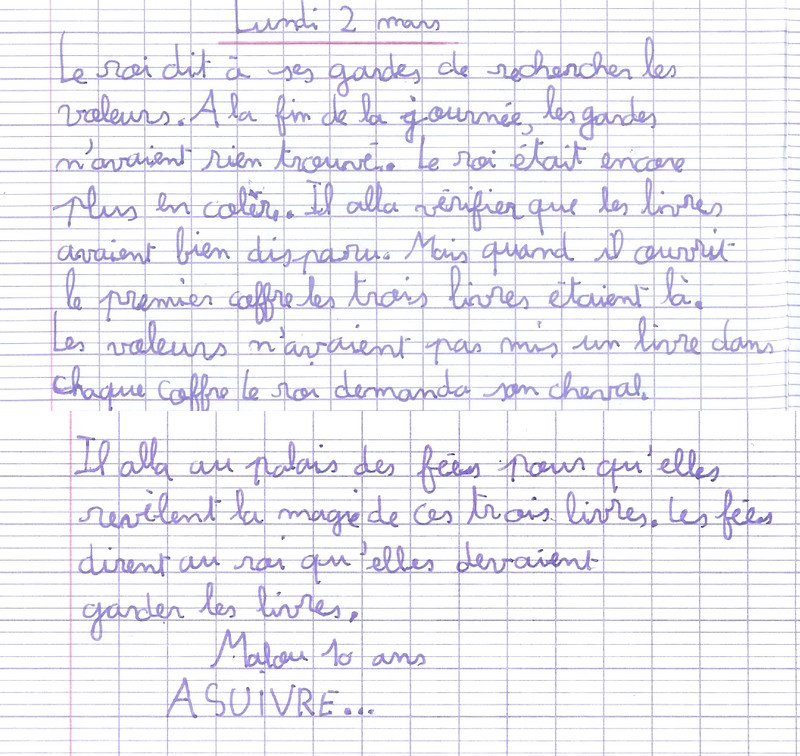 Lundi 2 mars
Le roi dit à ses gardes de rechercher les
voleurs. A la fin de la journée, les gardes
n'avaient rien trouvé. Le roi était encore
plus en colère. Il alla vérifier que les livres
avaient bien disparu. Mais quand il ouvrit
le premier coffre les trois livres étaient là.
Les voleurs n'avaient pas mis un livre dans
chaque coffre le roi demanda son cheval.
Il alla au palais des fées pour qu'elles
revèlent la magie de ces trois livres. Les fées
dirent au roi qu'elles devaient
garder les livres.
Malou 10 ans
A SUIVRE...